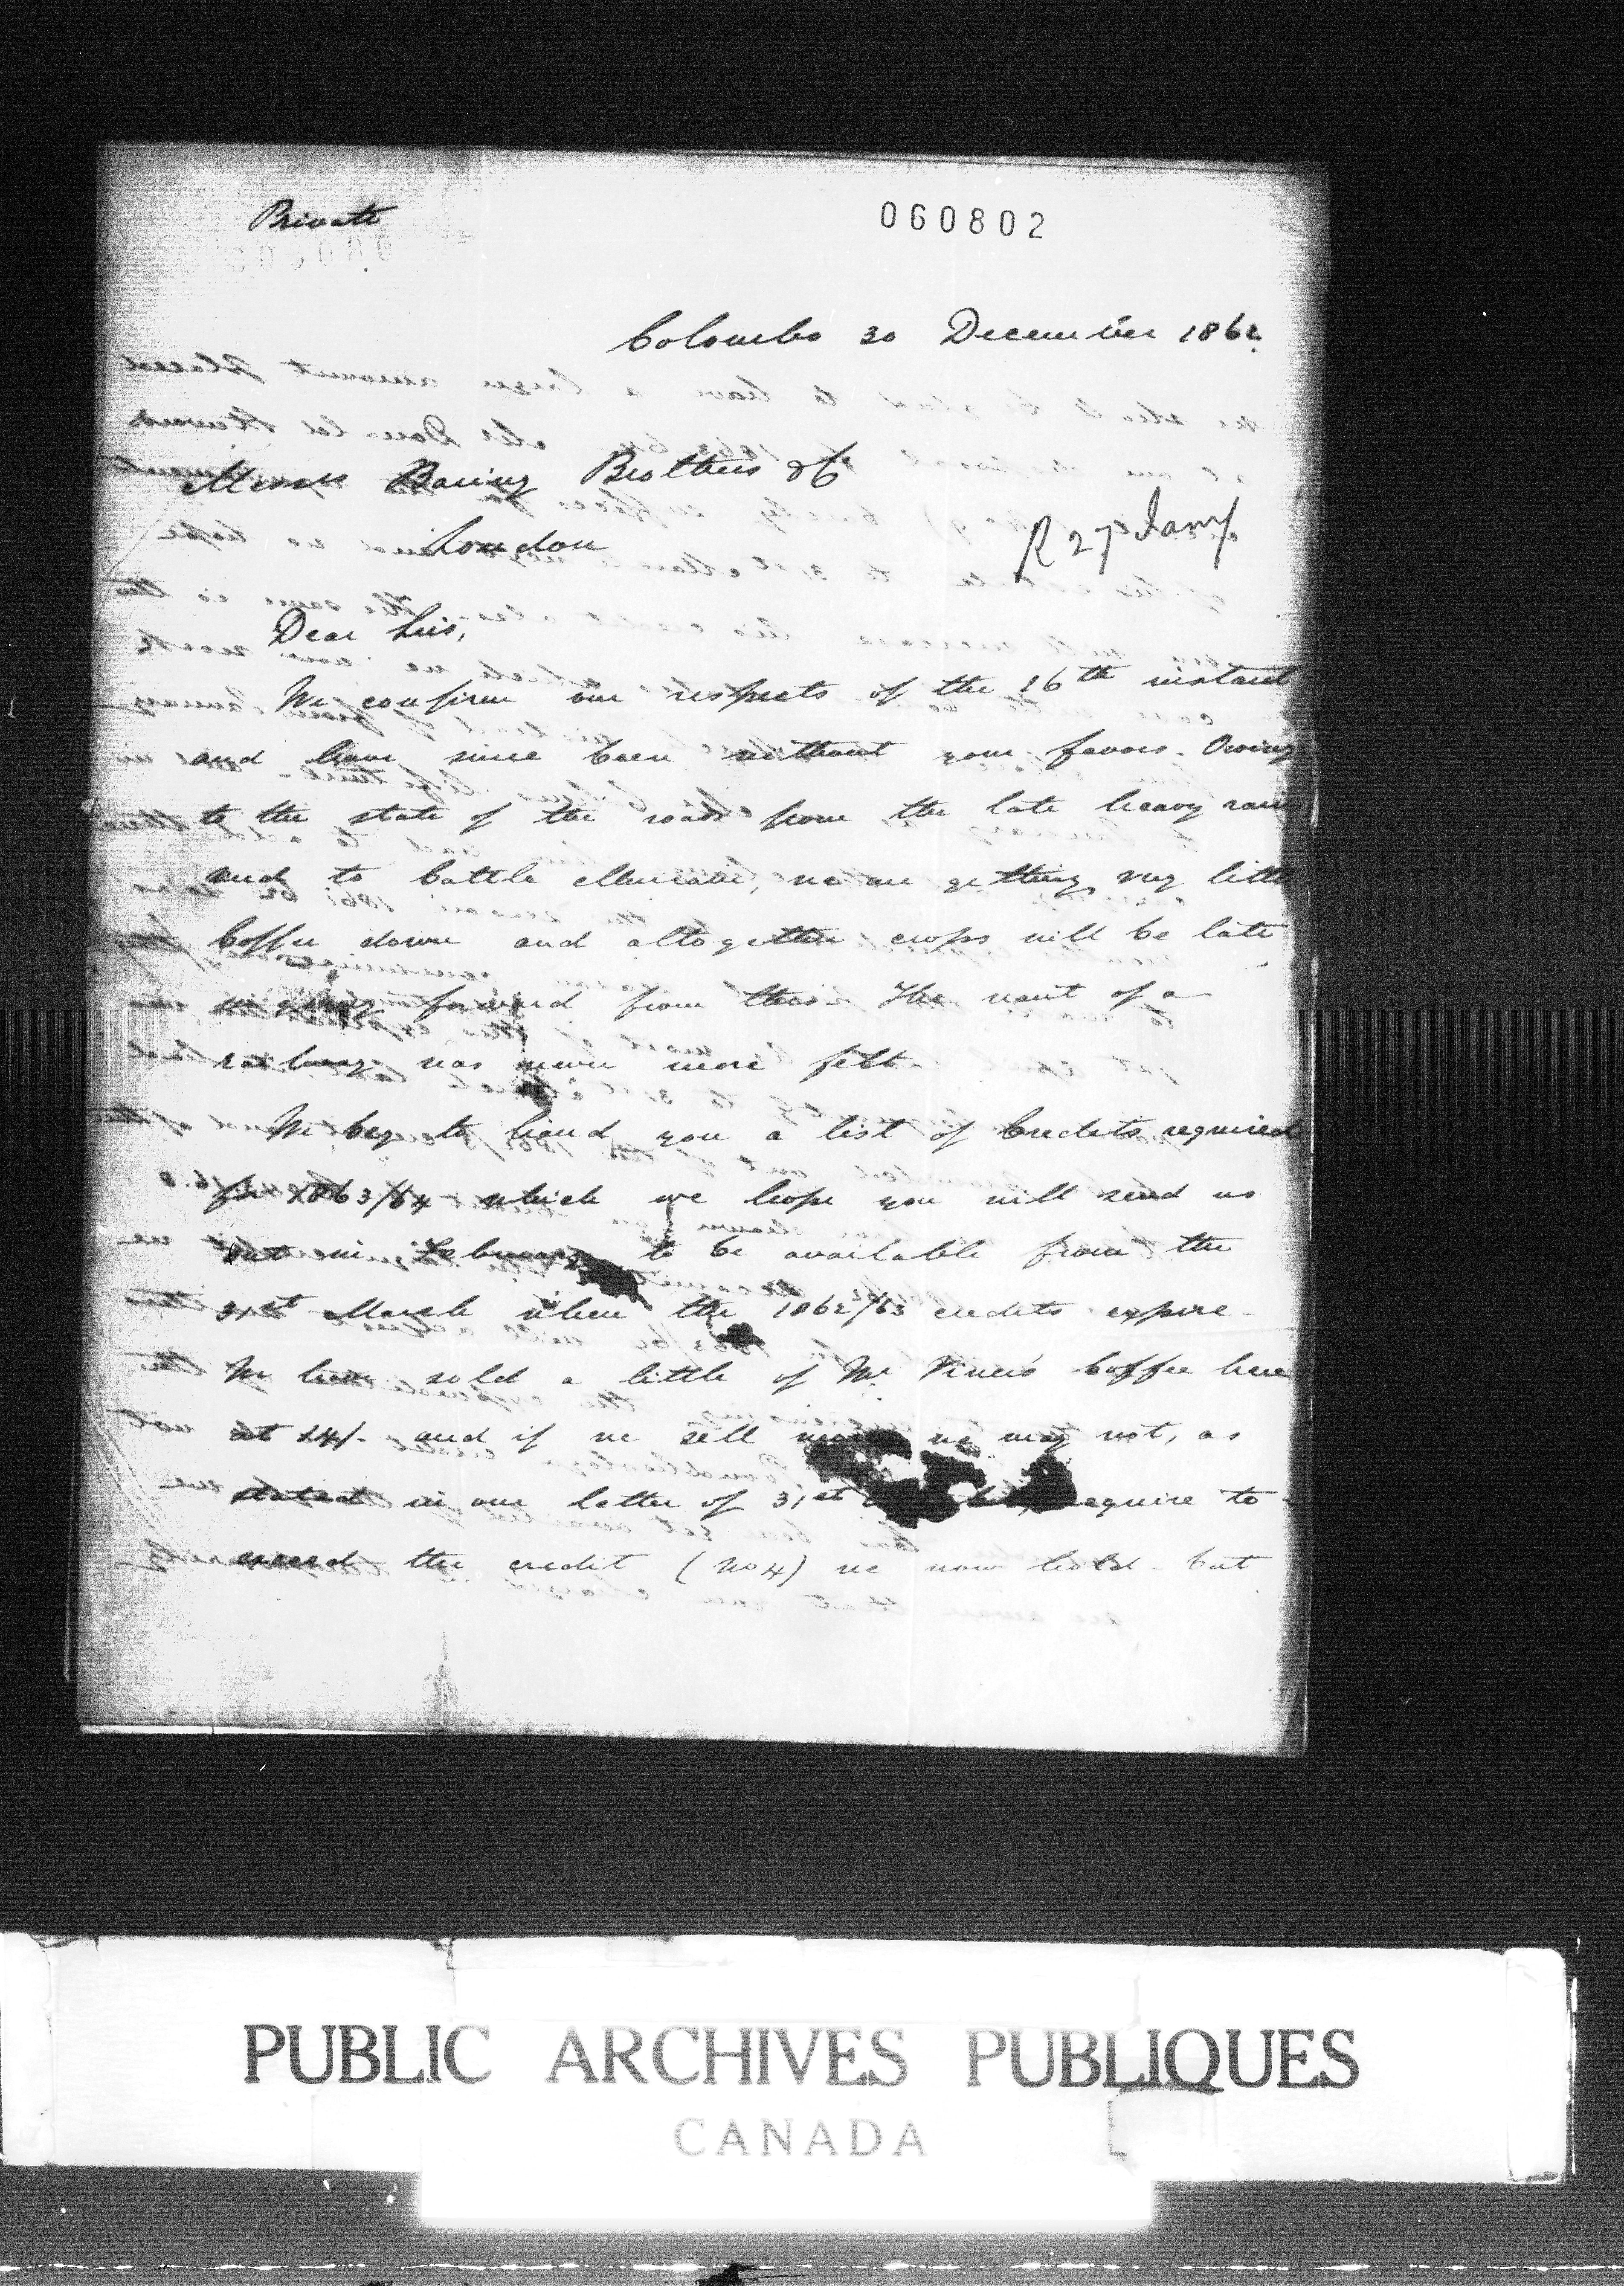 Private
060802
Colombo 30 December 1862
Messrs Baring Brothers & Co
London
R 27 Jany
Dear Sirs,
We confirm our respects of the 16th instant
and have since been without your favors. Owing
to the state of the roads from the late heavy rains
and to Cattle Murrain, we are getting very little
Coffee down and altogether crops will be late
in going forward from this. The want of a
railway was never more felt.
We beg to hand you a list of Credits required
for 1863/64 which we hope you will send us
out in February to be available from the
31st March when the 1862/63 credits expire.
We have sold a little of Mr Coffee here
at and if we sell more we may not, as
stated in our letter of 31st require to
exceed the credit (No 4) we now hold but
PUBLIC ARCHIVES PUBLIQUES
CANADA